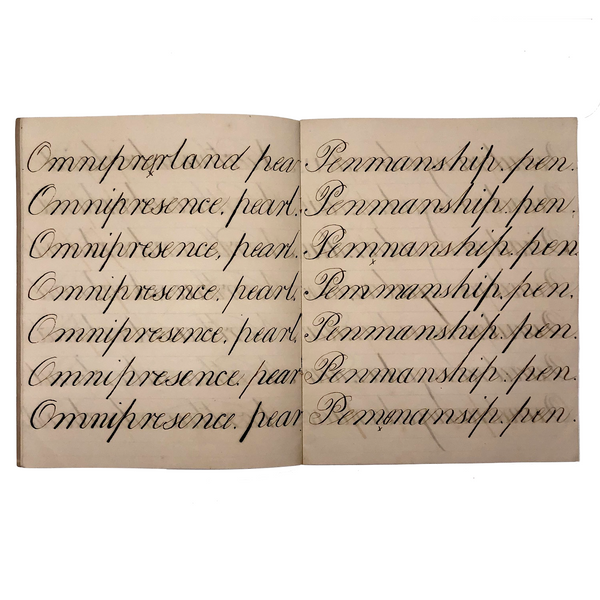 Omniprerland pea
Omnipresence. pearl.
Omnipresence, pearl.
Omnipresence. pearl,
Omnipresence. pearl,
Omnipresence. pear
Omnipresence. pear
Penmanship. pen.
Penmanship. pen.
Pemnanship. pen.
Pemmanship. pen.
Penmanship. pen.
Penmanship. pen.
Pemmansip. pen.